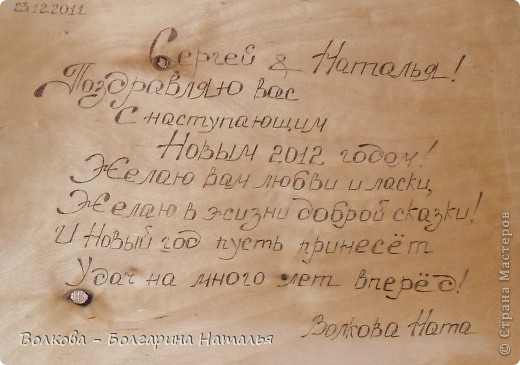 23.12.2011
Сергей & Наталья!
Поздравляю вас
С наступающим
Новым 2012 годом!
Желаю вам любви и ласки,
Желаю в жизни доброй сказки!
И Новый год пусть принесёт
Удач на много лет вперёд!
Волкова Ната
Волкова - Болгарина Наталья
© Страна Мастеров